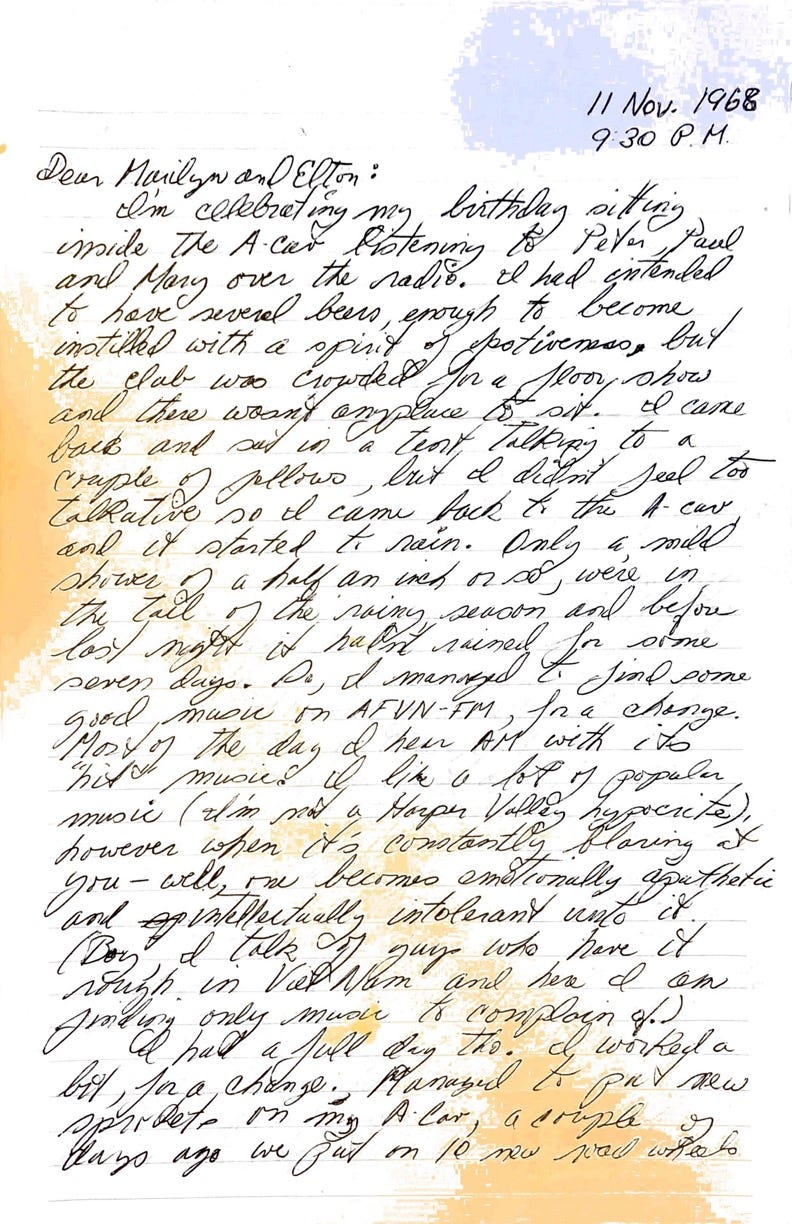 11 Nov. 1968
9:30 P.M.
Dear Marilyn and Elton:
I'm celebrating my birthday sitting
inside the A-car listening to Peter, Paul
and Mary over the radio. I had intended
to have several beers, enough to become
instilled with a spirit of festiveness, but
the club was crowded for a floor show
and there wasn't anyplace to sit. I came
back and sat in a tent talking to a
couple of fellows, but I didn't feel too
talkative so I came back to the A-car,
and it started to rain. Only a mild
shower of a half an inch or so, we're in
the tail of the rainy season and before
last night it hadn't rained for some
seven days. So, I managed to find some
good music on AFVN-FM, for a change.
Most of the day I hear AM with its
"hit" music. I like a lot of popular
music (I'm not a Harper Valley hypocrite),
however when it's constantly blaring at
you - well, one becomes emotionally apathetic
and intellectually intolerant unto it.
(Boy I talk of guys who have it
rough in Viet Nam and here I am
finding only music to complain of.)
I had a full day tho. I worked a
bit, for a change. Managed to put new
sprockets on my A-Car, a couple of
days ago we put on 10 new road wheels